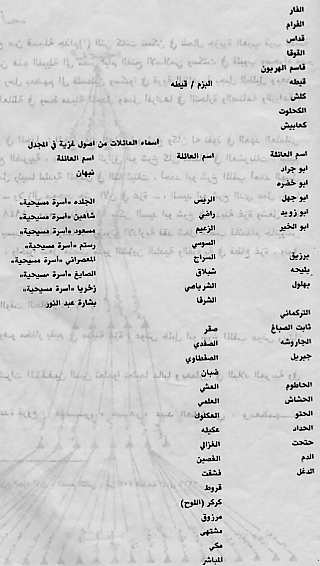 الفار
الفرام
قداس
القوقا
قاسم الهربون
قيطه
كلش
الكحلوت
كعابيش
البزم / قيطه
اسماء العائلات من اصول غزية في المجدل
اسم العائلة
ابو جراد
ابو خضره
ابو جهل
ابو زويد
ابو الخير
برزيق
بليحه
بهلول
التركماني
ثابت الصباغ
الجاروشه
جبريل
الحاطوم
الحشاش
الحتو
الحداد
حتحت
الدم
الدغل
اسم العائلة
الريس
راضي
الزعيم
السوسي
السراج
شبلاق
الشرباصي
الشرفا
صقر
الصفدي
الصفطاوي
ضبان
العشي
العلمي
العكلوك
عكيله
الغزالي
الغصين
فشقت
قروط
كركر (اللوح)
مرزوق
مشتهى
مكي
المباشر
اسم العائلة
نبهان
الجلده «أسرة مسيحية»
شاهين «أسرة مسيحية»
مسعود «أسرة مسيحية»
رستم «أسرة مسيحية»
المعصراني «أسرة مسيحية»
الصايغ «أسرة مسيحية»
زخريا «أسرة مسيحية»
بشارة عبد النور